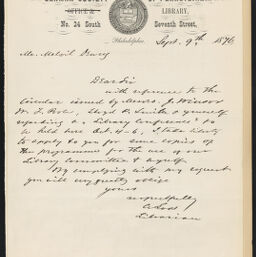 GERMAN SOCIETY OF PENNSYLVANIA
OFFICE & LIBRARY,
No. 24 South Seventh Street,
Philadelphia, Sept. 9th 1876
Mr. Melvil Dewey
Dear Sir
with reference to the
Circular issued by Messrs. J. Winsor
W. F. Poole, Lloyd P. Smith & yourself
regarding a Library Conference to
be held here Oct. 4-6, I take liberty
to apply to you for some copies of
the programme for the use of our
Library Committee & myself.
By complying with my request
you will greatly oblige
yours
respectfully
Librarian